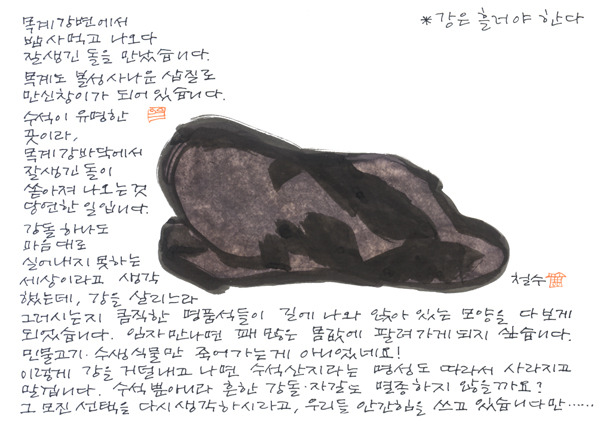 *강은 흘러야 한다
목계강변에서
밥사먹고 나오다
잘생긴 돌을 만났습니다.
목계도 볼성사나운 삽질로
만신창이가 되어있습니다.
수석이 유명한
곳이라,
목계강바닥에서
잘생긴 돌이
쏟아져 나오는것
당연한 일입니다.
강돌 하나도
마음대로
실어내지 못하는
세상이라고 생각
했는데, 강을 살리느라
그러시는지 큼직한 명품석들이 길에 나와 앉아 있는 모양을 다보게
되었습니다. 임자만나면 꽤 많은 몸값에 팔려가게 되지 싶습니다.
민물고기·수생식물만 죽어가는게 아니었네요!
이렇게 강을 거덜내고 나면 수석산지라는 명성도 따라서 사라지고
말겁니다. 수석뿐아니라 흔한 강돌·자갈도 멸종하지 않을까요?
그 모진 선택을 다시 생각하시라고, 우리들 안간힘을 쓰고 있습니다만……
철수